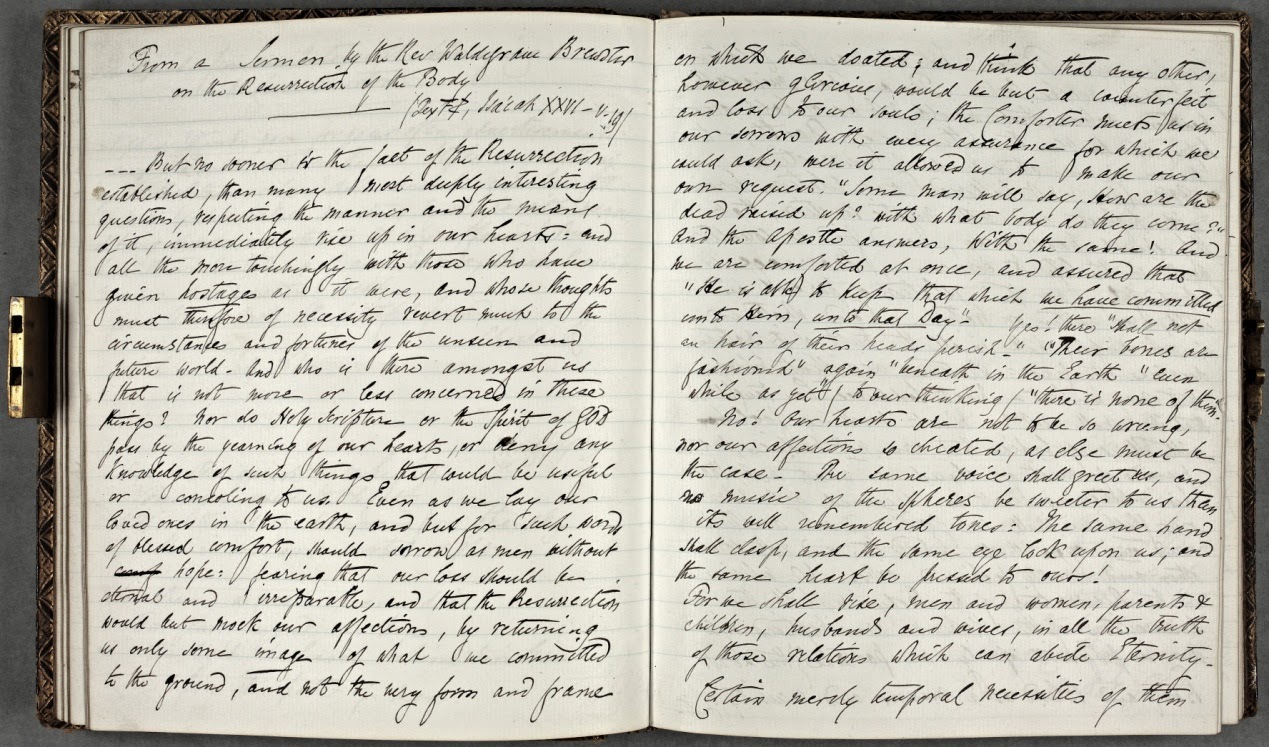 From a Sermon by the Rev Waldegrave Brewster
on the Resurrection of the Body
(Text, Isaiah XXVI - v. 19)
--- But no sooner is the fact of the Resurrection
established, than many most deeply interesting
questions, respecting the manner and the means
of it, immediately rise up in our hearts: and
all the more touchingly with those who have
given hostages as it were, and whose thoughts
must therefore of necessity revert much to the
circumstances and fortunes of the unseen and
future world - And who is there amongst us
that is not more or less concerned in these
things? Nor do Holy Scripture or the Spirit of GOD
pass by the yearning of our hearts, or deny any
knowledge of such things that could be useful
or consoling to us. Even as we lay our
loved ones in the earth, and but for such words
of blessed comfort, should sorrow as men without
hope: fearing that our loss should be
eternal and irreparable, and that the Resurrection
would but mock our affections, by returning
us only some image of what we committed
to the ground, and not the very form and frame
on which we doated; and think that any other,
however glorious, would be but a counterfeit
and loss to our souls; the Comforter meets us in
our sorrows with every assurance for which we
could ask, were it allowed us to make our
own request. "Some man will say, How are the
dead raised up? with what body do they come?"
And the Apostle answers, With the same! And
we are comforted at once, and assured that
"He is able to keep that which we have committed
unto Him, unto that Day." Yes! there "shall not
an hair of their heads perish -" "Their bones are
fashioned" again "beneath in the Earth" "even
while as yet" (to our thinking) "there is none of them."
No! Our hearts are not to be so wrung,
nor our affections so cheated, as else must be
the case - The same voice shall greet us, and
no music of the spheres be sweeter to us than
its well remembered tones: The same hand
shall clasp, and the same eye look upon us; and
the same heart be pressed to ours!
For we shall rise, men and women, parents &
children, husbands and wives, in all the truth
of those relations which can abide Eternity -
Certain merely temporal necessities of them